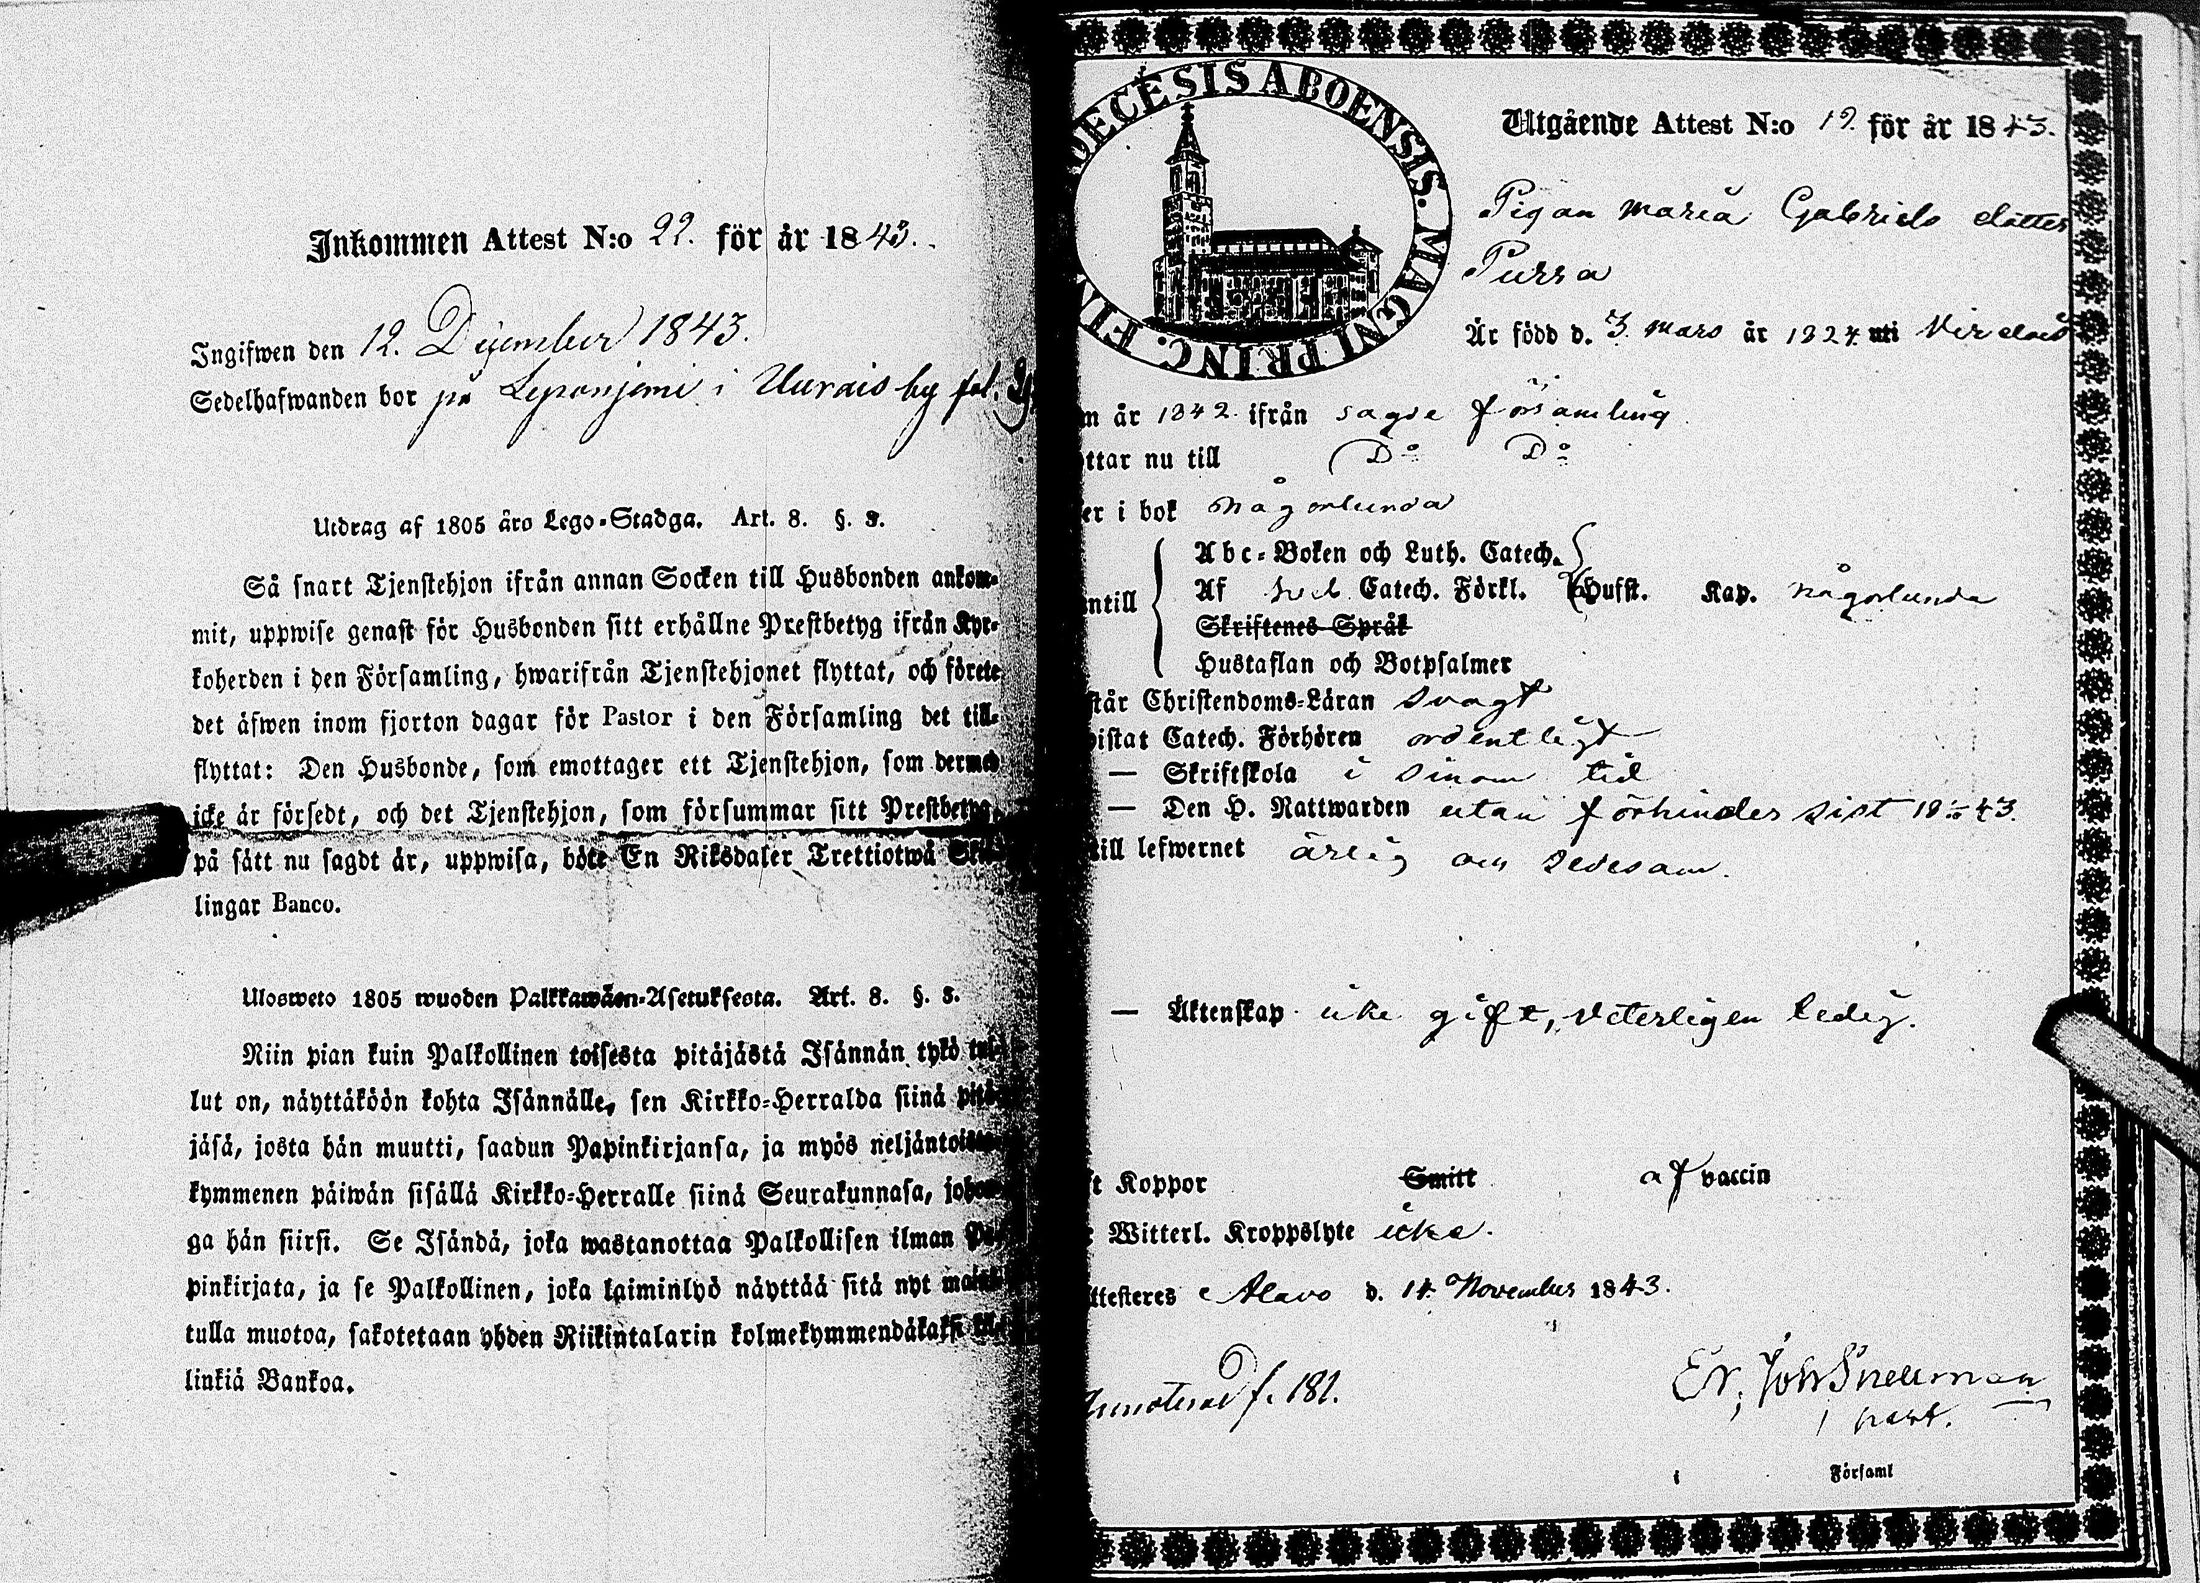 Inkommen Attest N:o 22. för år 1843.
Ingifwen den 12. December 1843.
Sedelhafwanden bor på Leponjemi i Uurais by fol.
Utdrag af 1805 års Lego-Stadga. Art. 8. §. 3.
Så snart Tjenstehjon ifrån annan Socken till Husbonden ankom-
mit, uppwise genast för Husbonden sitt erhållne Prestbetyg ifrån Kyr-
koherden i den Församling, hwarifrån Tjenstehjonet flyttat, och förete
det äfwen inom fjorton dagar för Pastor i den Församling det till-
flyttat: Den Husbonde, som emottager ett Tjenstehjon, som dermed
icke är försedt, och det Tjenstehjon, som försummar sitt Prestbetyg,
på sätt nu sagdt är, uppwisa, böte En Riksdaler Trettiotwå Skil-
lingar Banco.
Ulosweto 1805 wuoden Palkkawäen-Asetuksesta. Art. 8. §. 3.
Niin pian kuin Palkollinen toisesta pitäjästä Isännän tykö tul-
lut on, näyttäköön kohta Isännälle, sen Kirkko-Herralda siinä pitä-
jäsä, josta hän muutti, saadun Papinkirjansa, ja myös neljäntoista-
kymmenen päiwän sisällä Kirkko-Herralle siinä Seurakunnasa, johon-
ga hän siirsi. Se Isändä, joka wastanottaa Palkollisen ilman Pa-
pinkirjata, ja se Palkollinen, joka laiminlyö näyttää sitä nyt mainit-
tulla muotoa, sakotetaan yhden Riikintalarin kolmekymmendäkaksi kil-
linkiä Bankoa.
DECESIS ABOENSIS. MAGNI PRINC. FIN
Utgående Attest N:o 19. för år 1843.
Pigan Maria Gabriels dotter
Purra
Är född d. 3 Mars år 1824 uti Virdois
m år 1842. ifrån sagde församling
ttar nu till Do Do
er i bok någorlunda
Abc-Boken och Luth. Catech.
ntill Af Catech. Förkl. Hufst. Kap. någorlunda
Skriftenes Språk
Hustaflan och Botpsalmer
står Christendoms-Läran svagt
istat Catech. Förhören ordentligt
— Skriftskola i sinom tid
— Den H. Nattwarden utan förhinder sist 18 43.
till lefwernet ärlig och sedesam.
— Äktenskap icke gift, veterligen ledig.
t Koppor Smitt af vaccin
Witterl. Kroppslyte icke.
ttesteres Alavo d. 14 November 1843.
f. 181.
Er. Joh Snellman
past.
i Församl